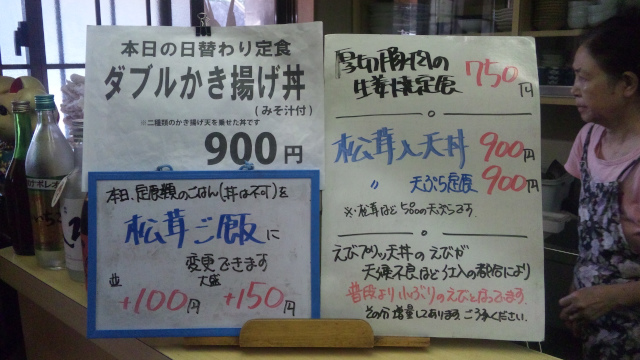 本日の日替わり定食
ダブルかき揚げ丼
(みそ汁付)
※二種類のかき揚げ天を乗せた丼です
900円
本日、定食類のごはん(丼は不可)を
松茸ご飯に
変更できます
並 大盛
+100円 +150円
厚切豚肉の
生姜焼定食 750円
松茸入天丼 900円
〃 天ぷら定食 900円
※松茸など5品の天ぷらです。
えびプリッ天丼のえびが
天候不良など仕入の都合により
普段より小ぶりのえびとなってます。
その分増量してあります。ご了承ください。